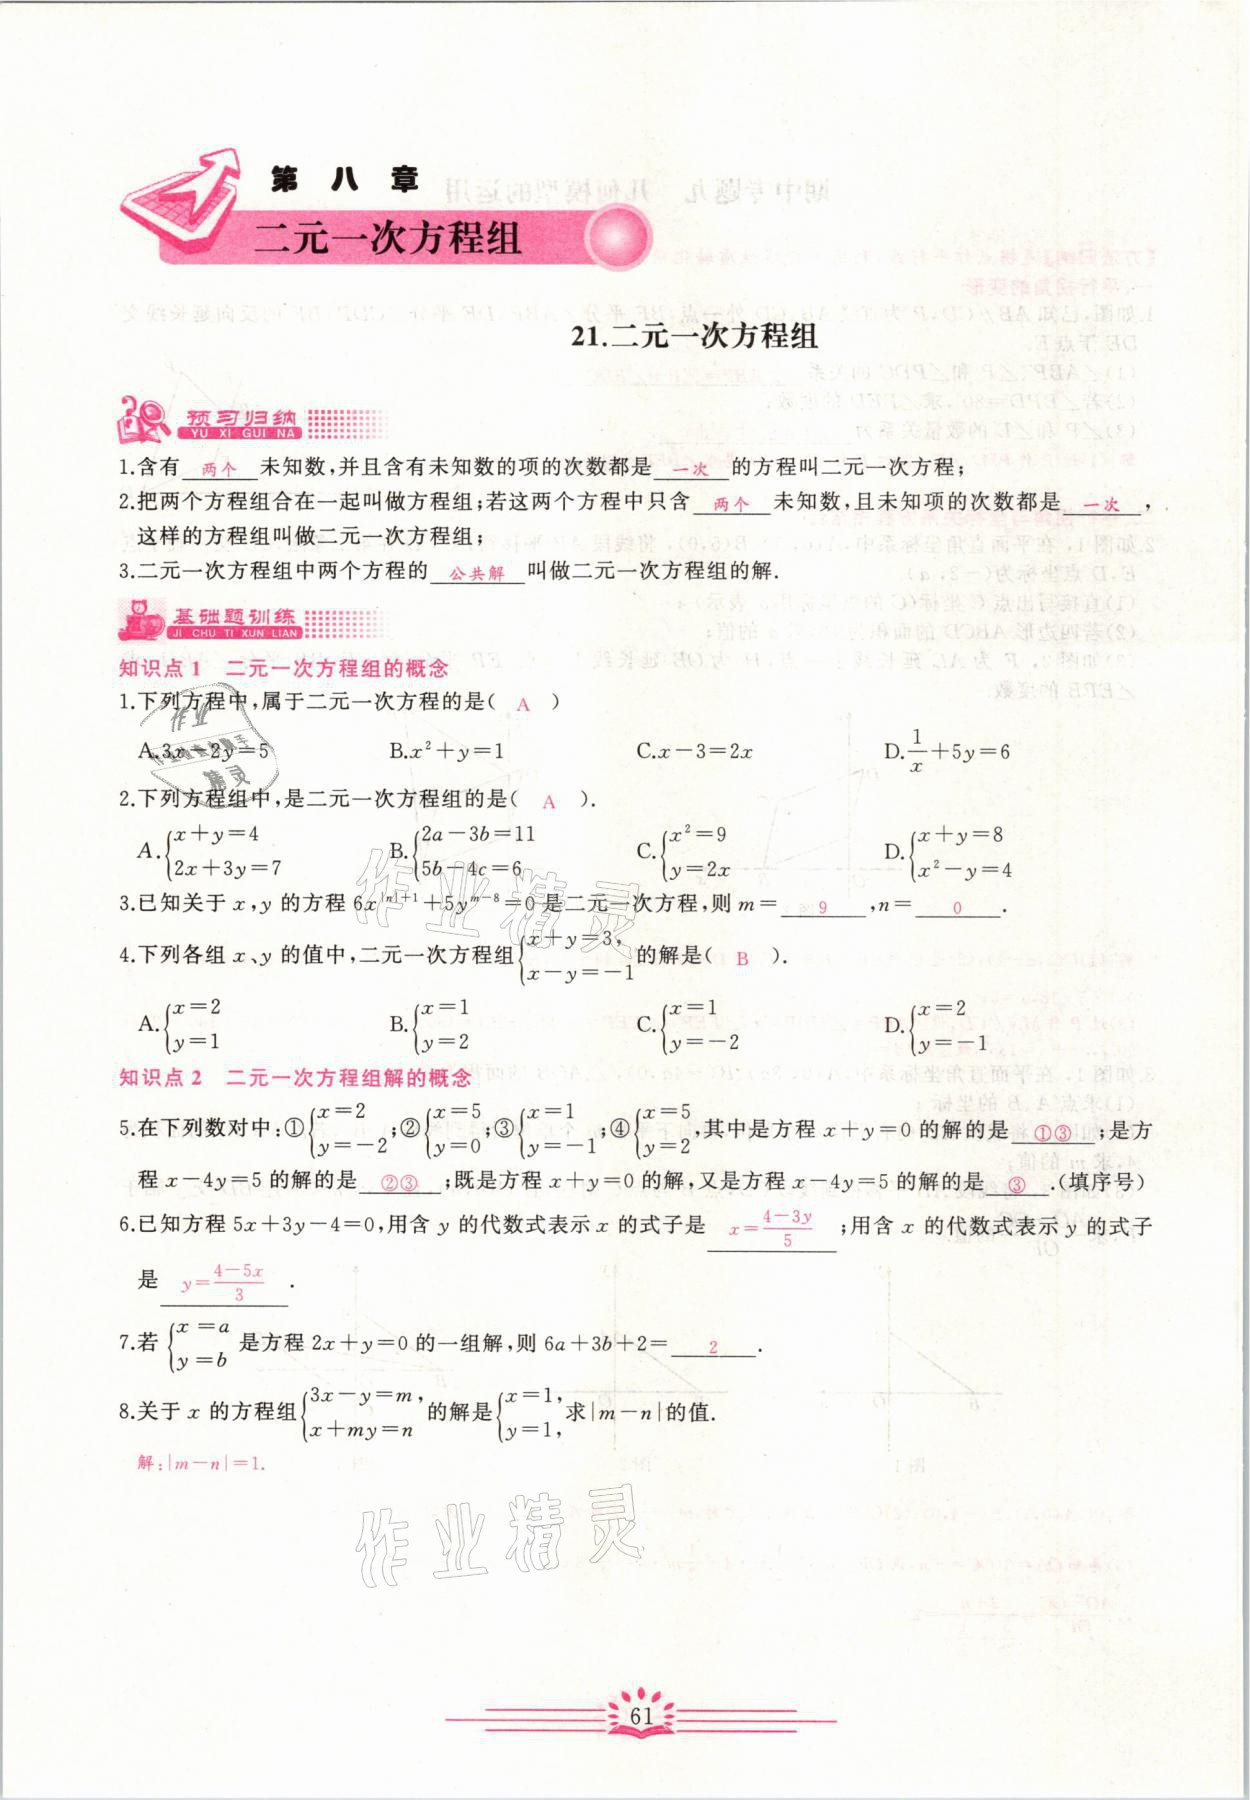 第 八 章
二元一次方程组
21.二元一次方程组
预习归纳
YU XI GUI NA
1.含有 两个 未知数,并且含有未知数的项的次数都是 一次 的方程叫二元一次方程;
2.把两个方程组合在一起叫做方程组;若这两个方程中只含 两个 未知数,且未知项的次数都是 一次 ,
这样的方程组叫做二元一次方程组;
3.二元一次方程组中两个方程的 公共解 叫做二元一次方程组的解.
基础题训练
JI CHU TI XUN LIAN
知识点 1 二元一次方程组的概念
1.下列方程中,属于二元一次方程的是( A )
A.3x-2y=5 B.x²+y=1 C.x-3=2x D.1/x+5y=6
2.下列方程组中,是二元一次方程组的是( A ).
A.{x+y=4 2x+3y=7 B.{2a-3b=11 5b-4c=6 C.{x²=9 y=2x D.{x+y=8 x²-y=4
3.已知关于 x,y 的方程 6x^{|n|+1}+5y^{m-8}=0 是二元一次方程,则 m= 9 ,n= 0 .
4.下列各组 x、y 的值中,二元一次方程组{x+y=3, x-y=-1 的解是( B ).
A.{x=2 y=1 B.{x=1 y=2 C.{x=1 y=-2 D.{x=2 y=-1
知识点 2 二元一次方程组解的概念
5.在下列数对中:①{x=2 y=-2;②{x=5 y=0;③{x=1 y=-1;④{x=5 y=2,其中是方程 x+y=0 的解的是 ①③ ;是方
程 x-4y=5 的解的是 ②③ ;既是方程 x+y=0 的解,又是方程 x-4y=5 的解的是 ③ .(填序号)
6.已知方程 5x+3y-4=0,用含 y 的代数式表示 x 的式子是 x=(4-3y)/5 ;用含 x 的代数式表示 y 的式子
是 y=(4-5x)/3 .
7.若{x=a y=b 是方程 2x+y=0 的一组解,则 6a+3b+2= 2 .
8.关于 x 的方程组{3x-y=m, x+my=n 的解是{x=1, y=1,求|m-n|的值.
解:|m-n|=1.
作业精灵
作业精灵
61